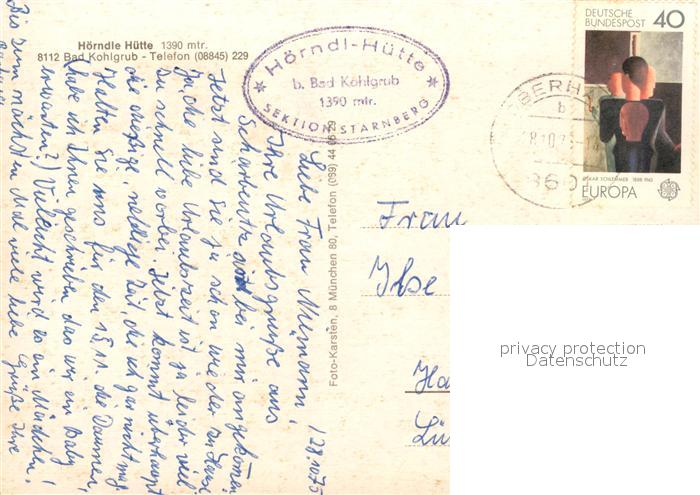 Hörndle Hütte 1390 mtr.
8112 Bad Kohlgrub - Telefon (08845) 229
Hörndl-Hütte
b. Bad Kohlgrub
1390 mtr.
SEKTION STARNBERG
DEUTSCHE BUNDESPOST 40
OSKAR SCHLEMMER 1888-1943
EUROPA
Foto-Karsten, 8 München 80, Telefon (089) 44
28.10.75
Liebe Frau
Ihre Urlaubsgrüße aus
Scharbeutz sind bei mir angekommen.
Jetzt sind Sie ja schon wieder zu Hause.
Ja die liebe Urlaubszeit ist ja leider viel
zu schnell vorbei. Jetzt kommt überhaupt
die Zeit, die ich gar nicht mag.
Halten Sie mir für den 15.11. die Daumen,
habe ich Ihnen geschrieben das wir ein Baby
erwarten?) Vielleicht wird es ein Mädchen!
Bis zum nächsten Mal viele liebe Grüße Ihre
Frau
Ilse
Ha
Lü
privacy protection
Datenschutz